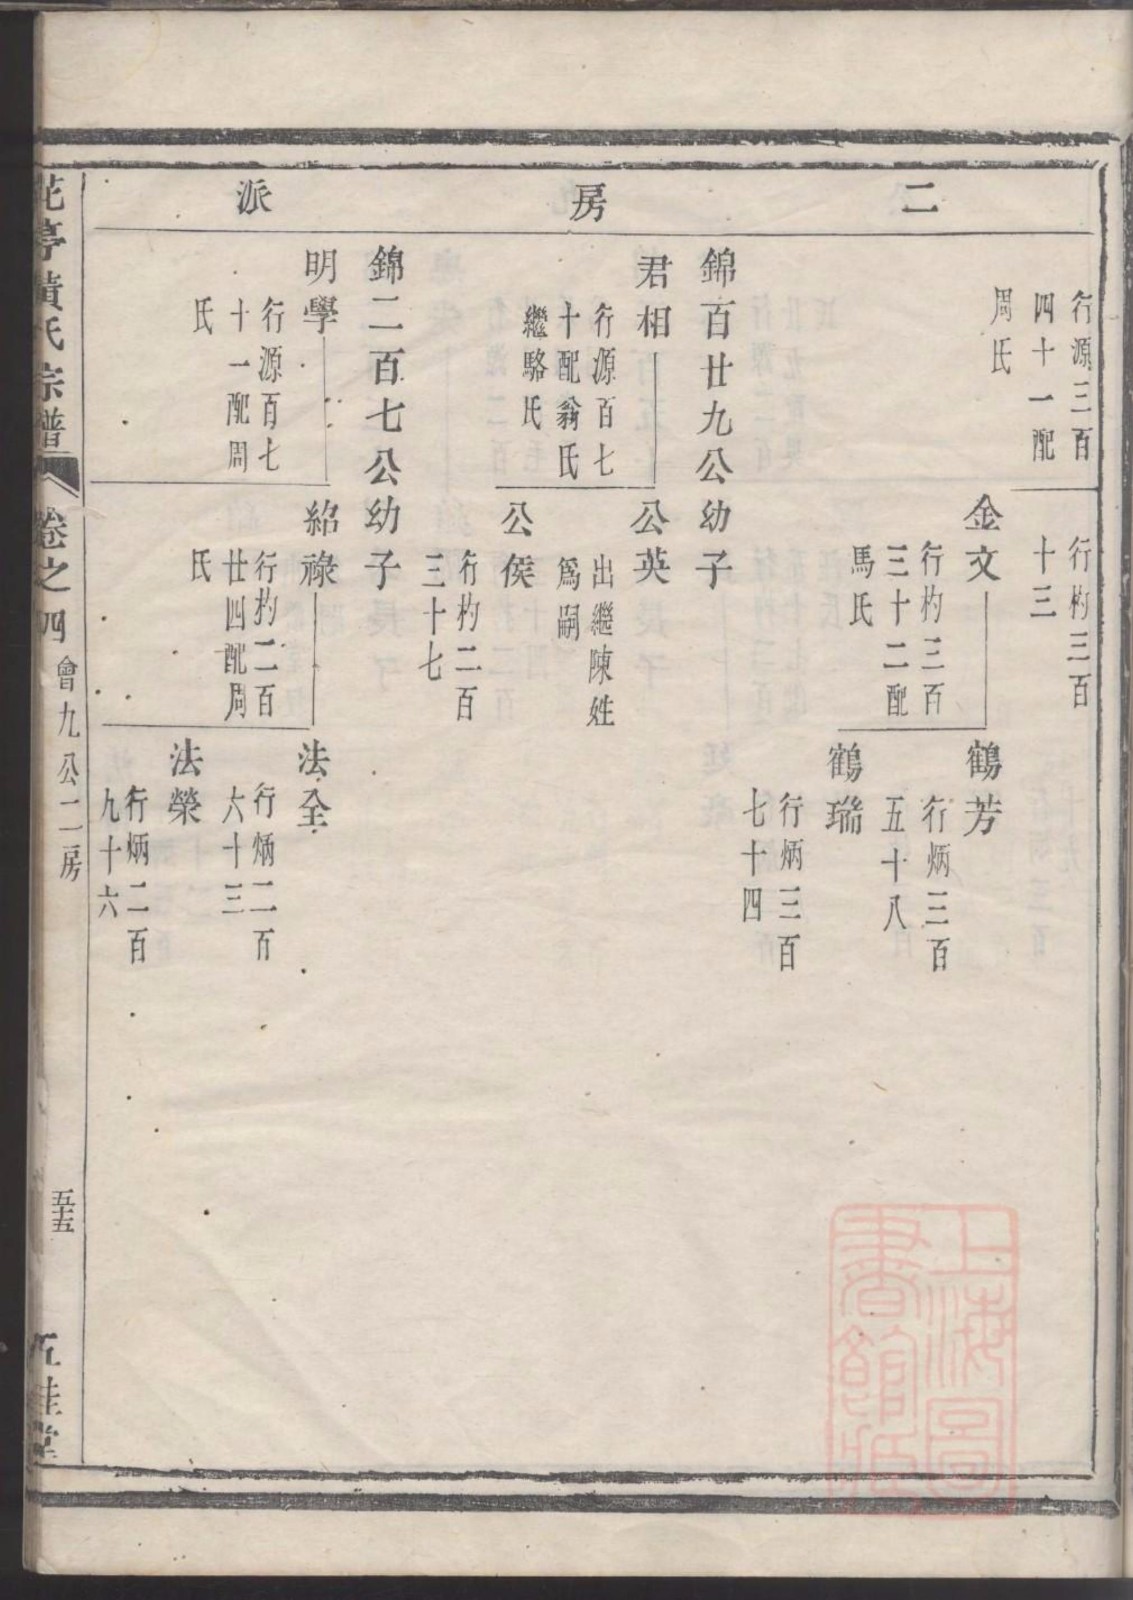 二房派
行源三百
四十一配
周氏
行杓三百
十三
金文
行杓三百
三十二配
馬氏
鶴芳
行炳三百
五十八
鶴瑞
行炳三百
七十四
錦百廿九公幼子
君相
行源百七
十配翁氏
繼駱氏
公英
出繼陳姓
爲嗣
公侯
行杓二百
三十七
錦二百七公幼子
明學
行源百七
十一配周
氏
紹祿
行杓二百
廿四配周
氏
法全
行炳二百
六十三
法榮
行炳二百
九十六
花亭黄氏宗譜
卷之四
會九公二房
五十五
五桂堂
上海圖
書館藏